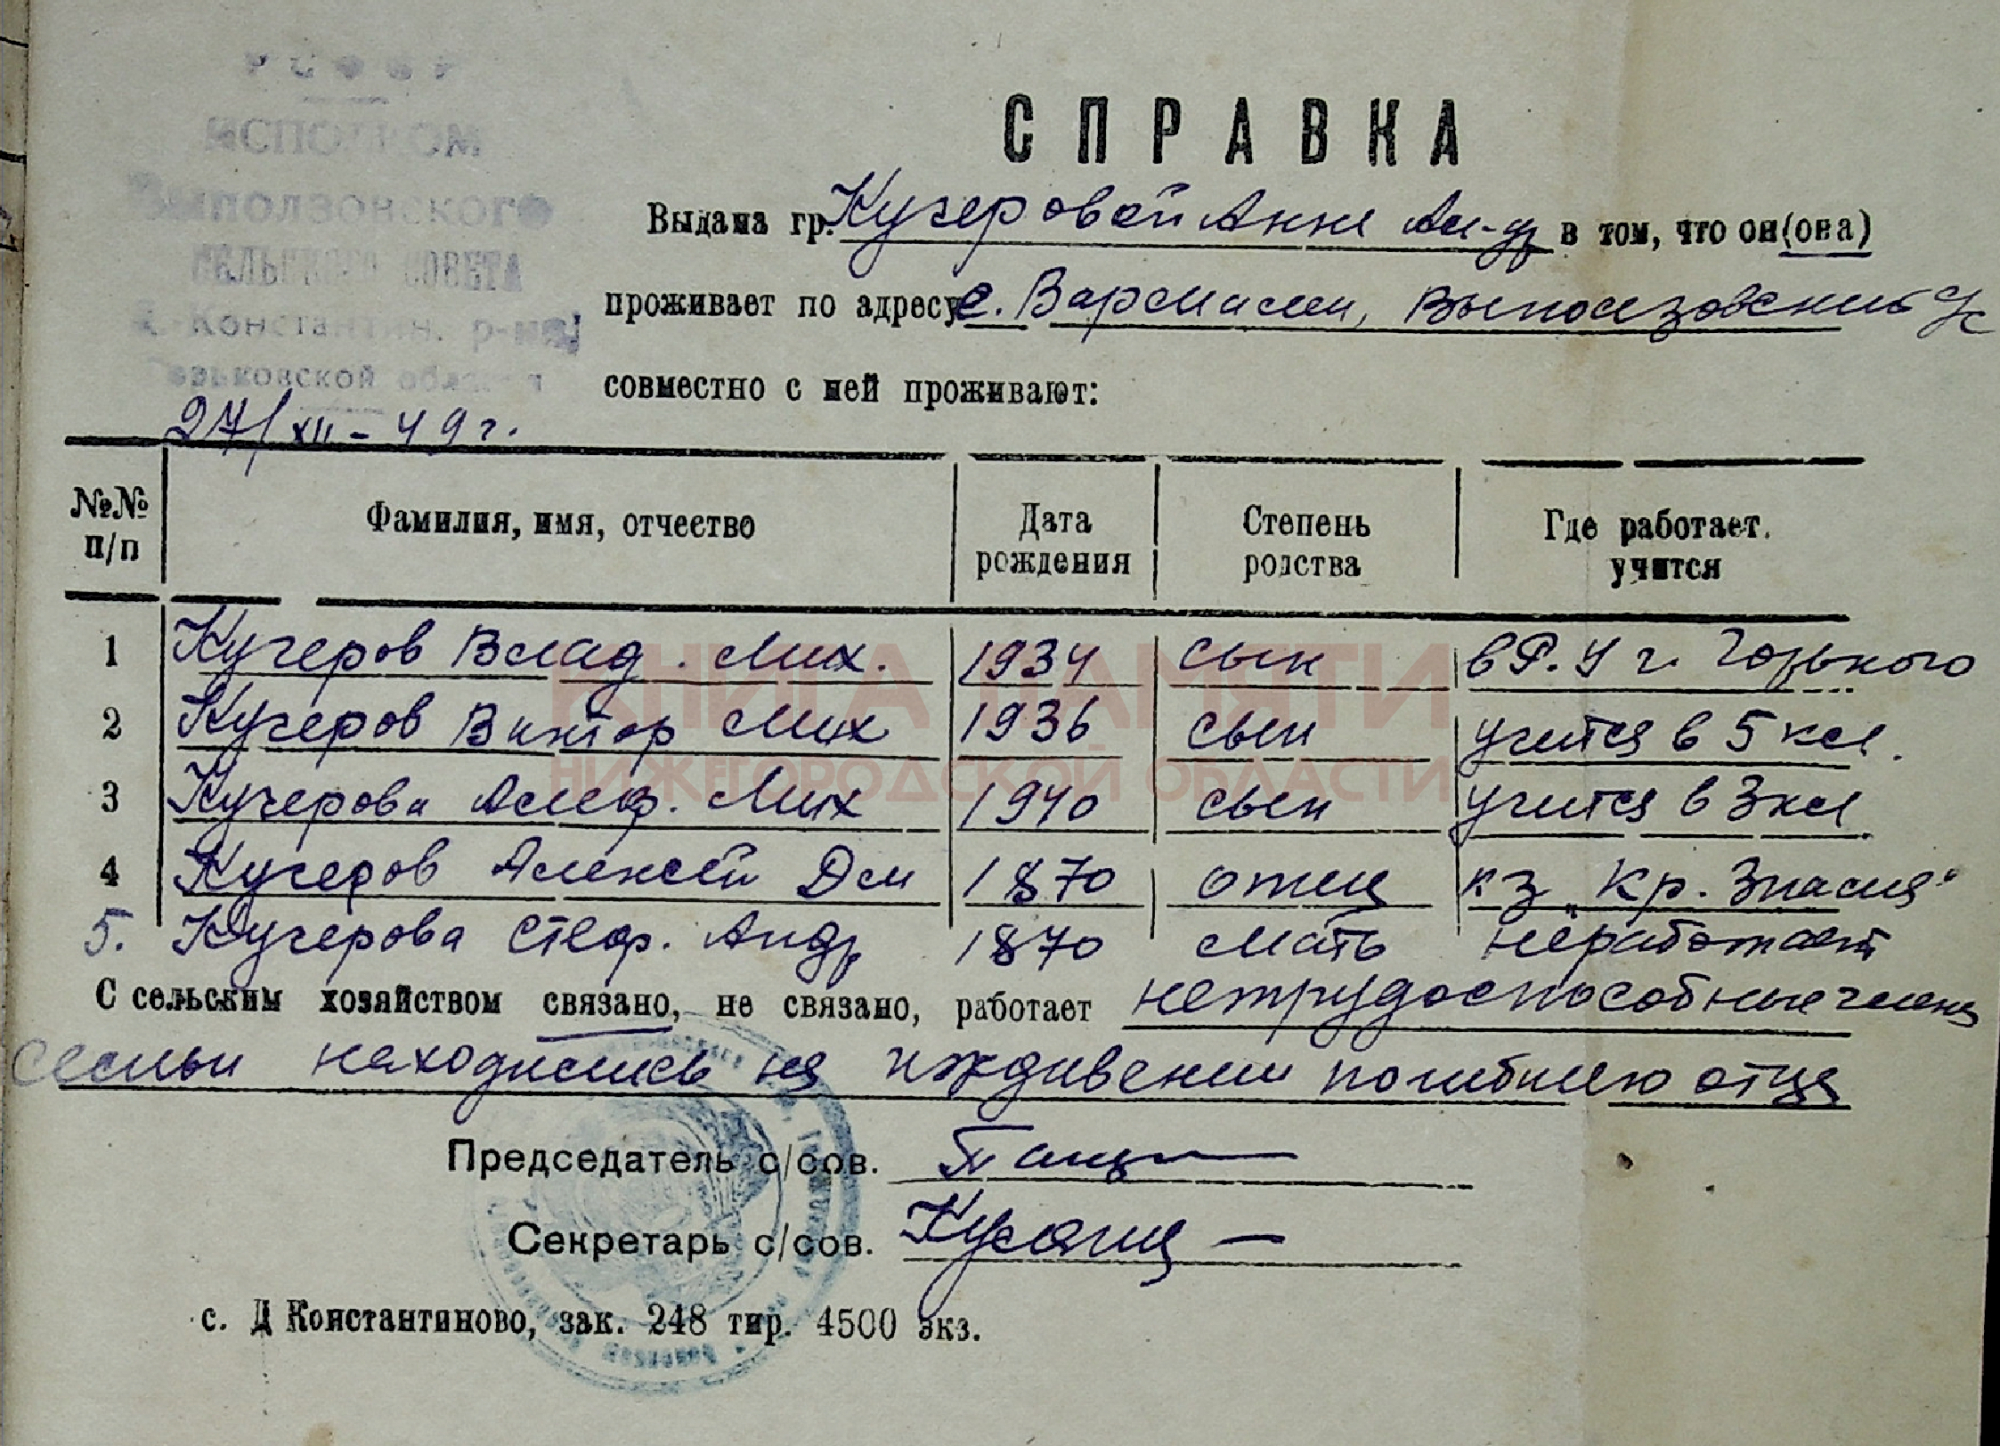 РСФСР
ИСПОЛКОМ
Выползовского
СЕЛЬСКОГО СОВЕТА
Д-Константин. р-на
Горьковской области
27/XII-49 г.
СПРАВКА
Выдана гр. Кучеровой Анне Ал-др в том, что он (она)
проживает по адресу с. Вармалеи, Выползовский с/с
совместно с ней проживают:
№№ п/п Фамилия, имя, отчество Дата рождения Степень родства Где работает. учится
1 Кучеров Влад. Мих. 1934 сын в Р.У г. Горького
2 Кучеров Виктор Мих 1936 сын учится в 5 кл.
3 Кучерова Алеф. Мих 1940 сын учится в 3 кл.
4 Кучеров Алексей Дм 1870 отец к-з „Кр. Знамя“
5. Кучерова Стеф. Андр 1870 мать не работает
КНИГА ПАМЯТИ
НИЖЕГОРОДСКОЙ ОБЛАСТИ
С сельским хозяйством связано, не связано, работает нетрудоспособные члены
семьи находились на иждивении погибшего отца
Председатель с/сов.
Секретарь с/сов.
с. Д Константиново, зак. 248 тир. 4500 экз.